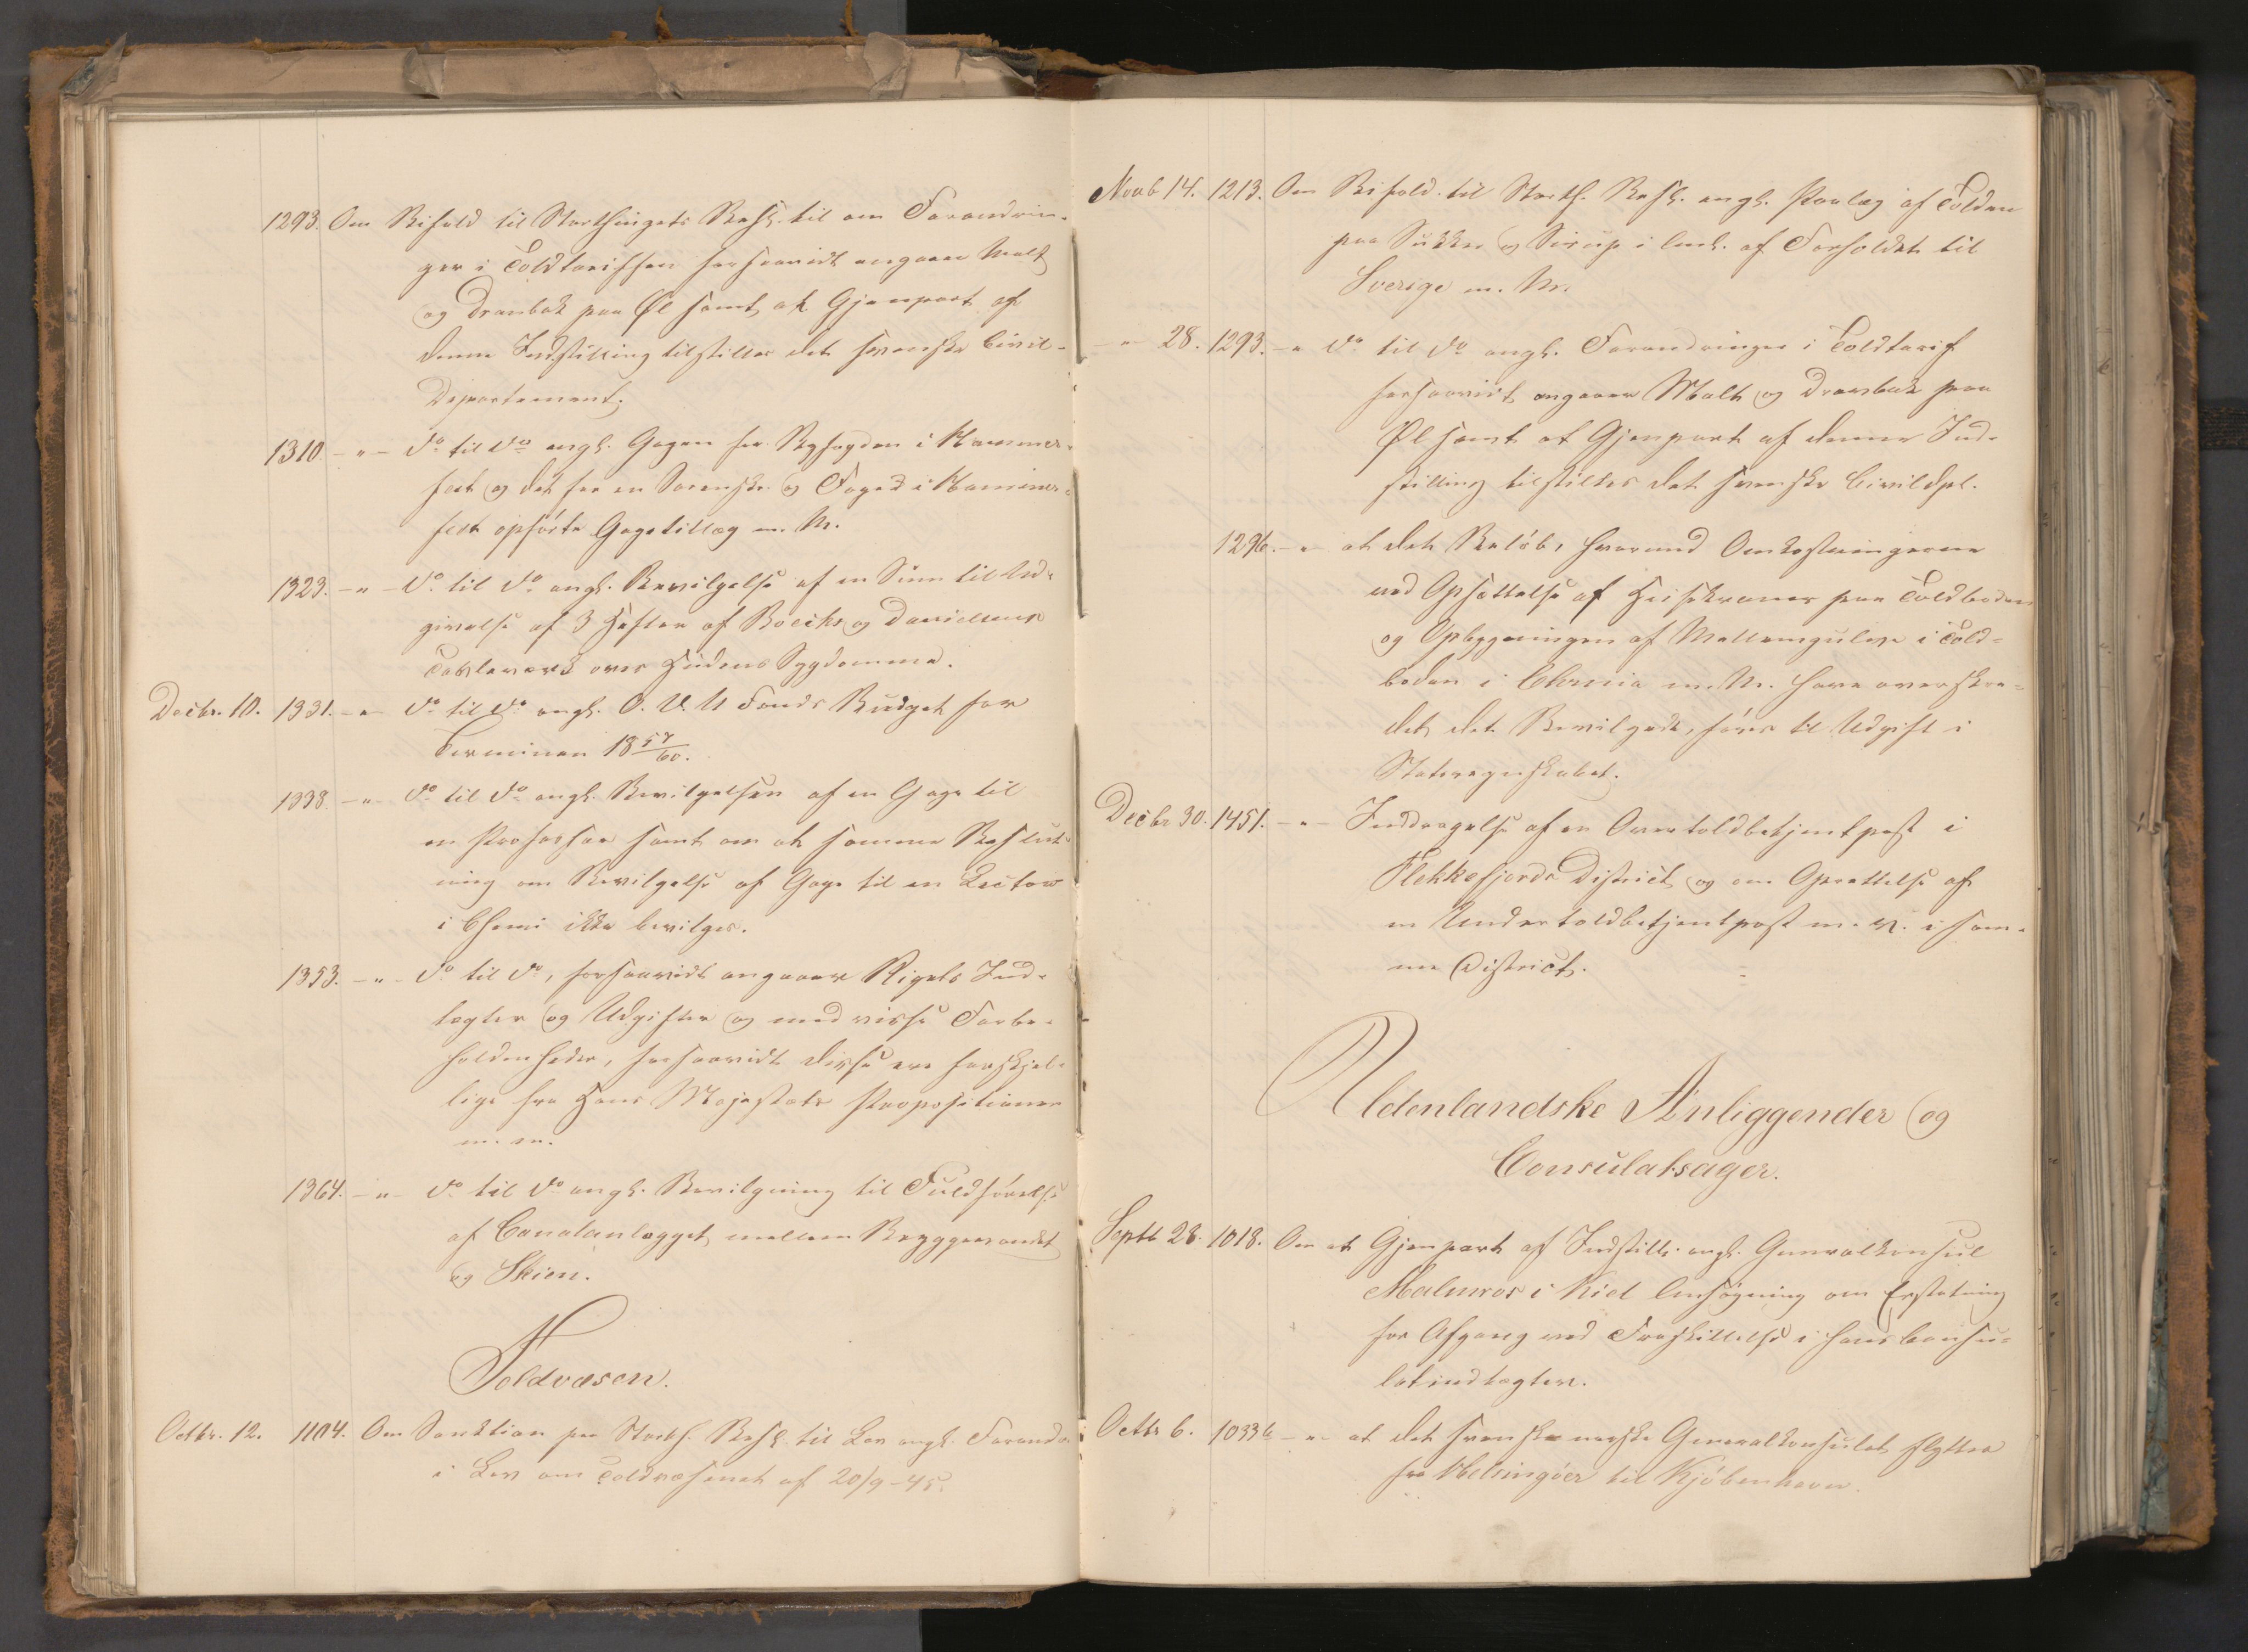 1293. Om Bifald til Storthingets Besl. til om Forandrin-
ger i Toldtariffen forsaavidt angaaer Malt
og Dranbak paa Øl samt at Gjenpart af
denne Indstilling tilstilles det svenske Civil-
Departement.
1310 -"- do til do angl. Gagen for Byfogden i Hammer-
fest og det for en Sorenskr. og Foged i Hammer-
fest opførte Gagetillæg m. M.
1323. -"- do til do angl. Bevilgelse af en Sum til Ud-
givelse af 3 Hefter af Boecks og Danielsens
Tavleværk over Hudens Sygdomme.
Decbr. 10. 1331. -"- do til do angl. O. V. U Fonds Budget for
Terminen 18 57/60.
1338. -"- do til do angl. Bevilgelsen af en Gage til
en Professor samt om at samme Beslut-
ning om Bevilgelse af Gage til en Lector
i Chemi ikke bevilges.
1353. -"- do til do, forsaavidt angaaer Rigets Ind-
tægter og Udgifter og med visse Forbe-
holdenheder, forsaavidt disse ere forskjel-
lige fra Hans Majestæts Propositioner
m. m.
1364. -"- do til do angl. Bevilgning til Fuldførelse
af Canalanlægget mellem Bryggevandet
og Skien.
Toldvæsen.
Octbr. 12. 1104. Om Sanktion paa Storth. Besl. til Lov angl. Forandr.
i Lov om Toldvæsenet af 20/9-45.
Novb 14. 1213. Om Bifald til Storth. Besl. angl. Paalæg af Tolden
paa Sukker og Sirup i Anl. af Forholdet til
Sverige m. M.
-"- 28. 1293. -"- do til do angl. Forandringer i Toldtarif
forsaavidt angaaer Malt og Drawbak paa
Øl samt at Gjenpart af denne Ind-
stilling tilstilles det svenske Civildpt.
1296. -"- at det Beløb, hvormed Omkostningerne
ved Opsættelse af Heisekraner paa Toldboden
og Opbygningen af Mellemgulve i Told-
boden i Chrnia m. M. have overskre-
det det Bevilgede, føres til Udgift i
Statsregnskabet.
Decbr 30. 1451. -"- Inddragelse af en Overtoldbetjentpost i
Flekkefjords District og om Oprettelse af
en Undertoldbetjentpost m. v. i sam-
me District.
Udenlandske Anliggender og
Consulatsager.
Septb 28. 1018. Om at Gjenpart af Indstill. angl. Generalkonsul
Malmros i Kiel Ansøgning om Erstatning
for Afgang ved Fraskillelse i hans Consu-
latindtægter.
Octbr 6. 1033b -"- at det svenske norske Generalkonsulat flyttes
fra Helsingöer til Kjöbenhavn.